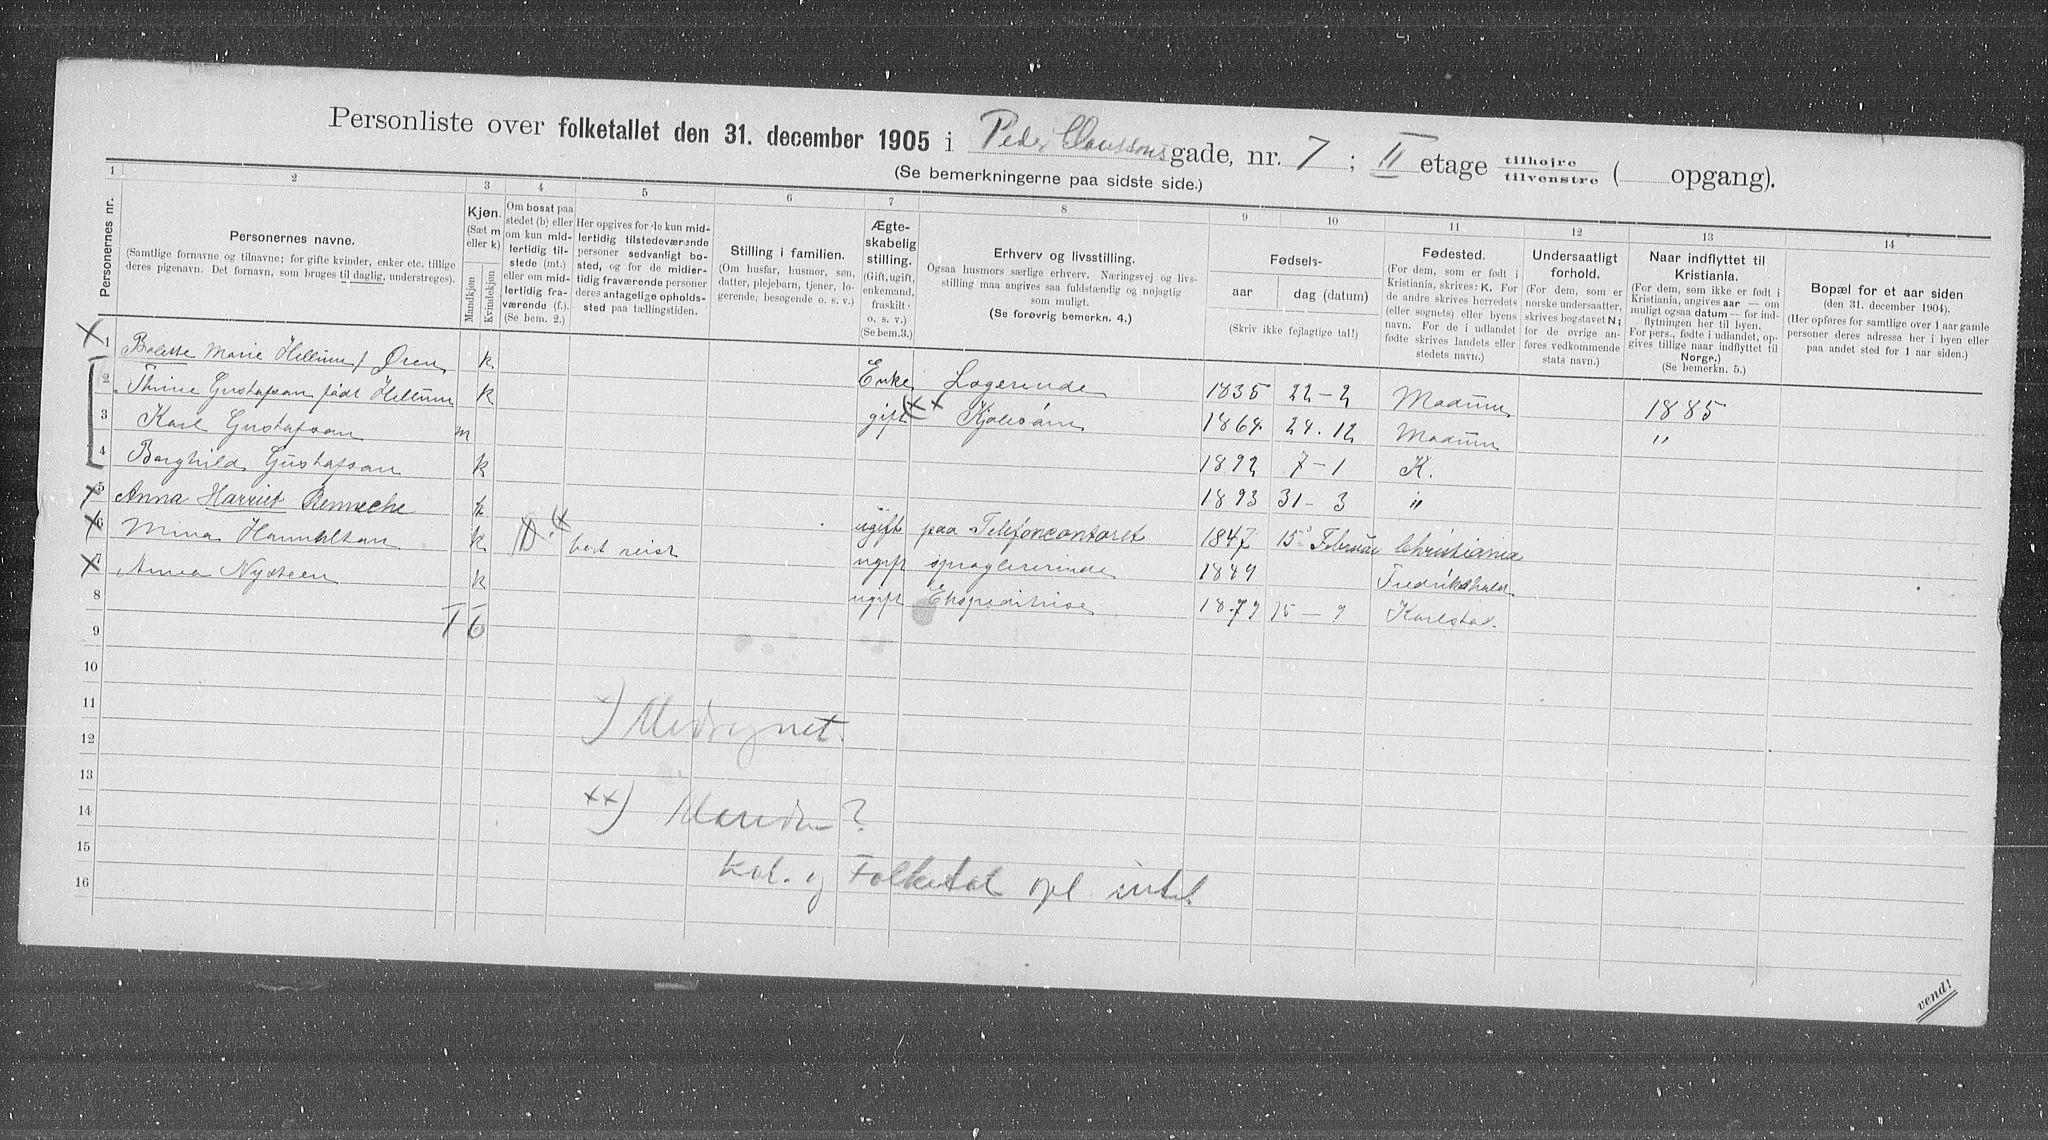 Personliste over folketallet den 31. december 1905 i Peder Claussons gade, nr. 7 ; II etage tilhøjre tilvenstre ( opgang).
(Se bemerkningerne paa sidste side.)
1 2 3 4 5 6 7 8 9 10 11 12 13 14
Personernes nr.
Personernes navne.
(Samtlige fornavne og tilnavne; for gifte kvinder, enker etc. tillige
deres pigenavn. Det fornavn, som bruges til daglig, understreges).
Kjøn.
(Sæt m
eller k)
Mandkjøn
Kvindekjøn
Om bosat paa
stedet (b) eller
om kun mid-
lertidig til-
stede (mt.)
eller om mid-
lertidig fra-
værende (f.).
(Se bem. 2.)
Her opgives for de kun mid-
lertidig tilstedeværende
personer sedvanligt bo-
sted, og for de midler-
tidig fraværende personer
deres antagelige opholds-
sted paa tællingstiden.
Stilling i familien.
(Om husfar, husmor, søn,
datter, plejebarn, tjener, lo-
gerende, besøgende o. s. v.)
Ægte-
skabelig
stilling.
(Gift, ugift,
enkemand,
fraskilt
o. s. v.)
(Se bem.3.)
Erhverv og livsstilling.
Ogsaa husmors særlige erhverv. Næringsvej og livs-
stilling maa angives saa fuldstændig og nøjagtig
som muligt.
(Se forøvrig bemerkn. 4.)
Fødsels-
aar dag (datum)
(Skriv ikke fejlagtige tal!)
Fødested.
(For dem, som er født i
Kristiania, skrives: K. For
de andre skrives herredets
(eller sognets) eller byens
navn. For de i udlandet
fødte skrives landets eller
stedets navn.)
Undersaatligt
forhold.
(For dem, som er
norske undersaatter,
skrives bogstavet N;
for de øvrige an-
føres vedkommende
stats navn.)
Naar indflyttet til
Kristiania.
(For dem, som ikke er født i
Kristiania, angives aar — om
muligt ogsaa datum — for ind-
flytningen her til byen.
For pers., fødte i udlandet, op-
gives tillige naar indflyttet til
Norge.)
(Se bemerkn. 5.)
Bopæl for et aar siden
(den 31. december 1904).
(Her opføres for samtlige over 1 aar gamle
personer deres adresse her i byen eller
paa andet sted for 1 aar siden.)
1 Bolette Marie Hellum f Øren k Enke Logerende 1835 22-2 Modum 1885
2 Thrine Gustafsan født Hellum k gift xx Kjolesöm 1864 24.12 Modum "
3 Karl Gustafsan m 1892 7-1 K.
4 Borghild Gustafsan k 1893 31-3 "
5 Anna Harriet Rennecke k ugift paa Telefoncontoret 1847 15 Februar Christiania
6 Mina k bort reist ugift 1849 Fredrikshald
7 Anna Nysteen k ugift Ekspeditrise 1879 15-9 Karlstad
8
9
10
11
12
13
14
15
16
1 6
x) Medregnet.
xx) Manden?
Kat. og Folketal opl. intet.
vend!